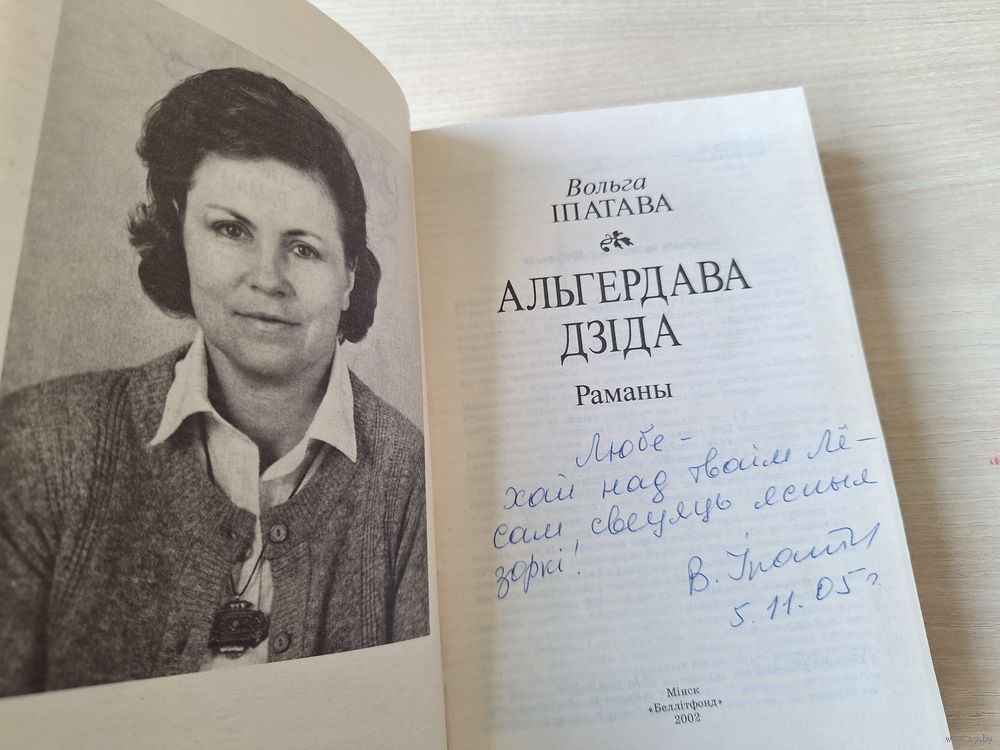 Вольга
ІПАТАВА
АЛЬГЕРДАВА
ДЗІДА
Раманы
Любе –
хай над тваім Лё–
сам свецяць ясныя
зоркі!
В. Іпат
5.11.05 г.
Мінск
«Беллітфонд»
2002
www.ay.by